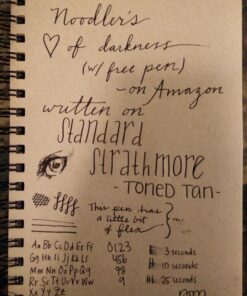 Noodler's
♡ of darkness...
(w/ free pen)
- on Amazon
written on
Standard
Strathmore
- TONED TAN -
ffff
This pen has
a little bit
of flex
Aa Bb Cc Dd Ee Ff
Gg Hh Ii Jj Kk Ll
Mm Nn Oo Pp Qq
Rr Ss Tt Uu Vv
Xx Yy Zz
0123
456
78
9
3 seconds
10 seconds
25 seconds